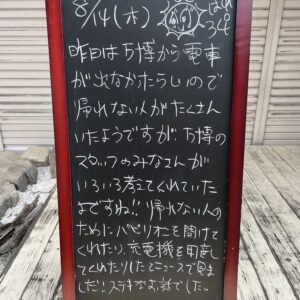 8/14(木)
はれ
34
昨日は万博から電車
が出なかたらしいので
帰れない人がたくさん
いたようですが万博の
スタッフのみなさんが
いろいろ考えてくれていた
ようですね!!帰れない人の
ためにパビリオンを開けて
くれたり、充電機を用意し
てくれたりしたとニュースで見ま
した!ステキなお話でした。